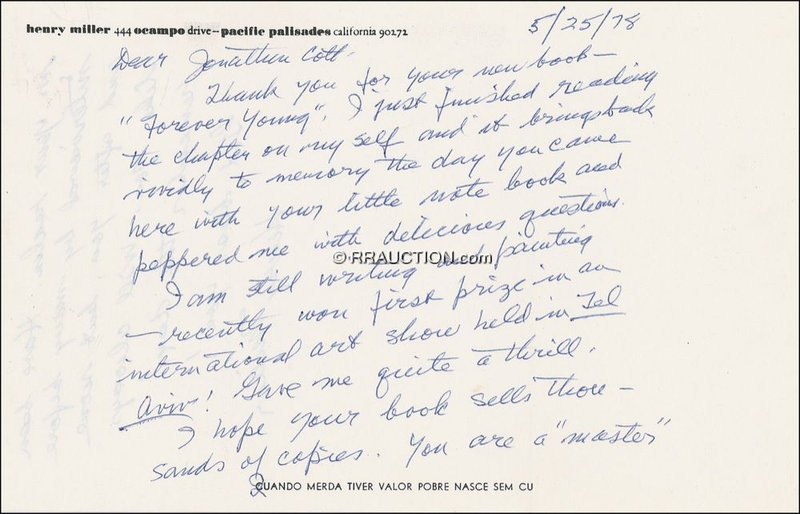 henry miller 444 ocampo drive -- pacific palisades california 90272
5/25/78
Dear Jonathan Cott -
Thank you for your new book -
"Forever Young". I just finished reading
the chapter on my self and it brings back
vividly to memory the day you came
here with your little note book and
peppered me with delicious questions.
© RRAUCTION.com
I am still writing and painting
- recently won first prize in an
international art show held in Tel
Aviv! Gave me quite a thrill.
I hope your book sells thou-
sands of copies. You are a "master"
2
CUANDO MERDA TIVER VALOR POBRE NASCE SEM CU